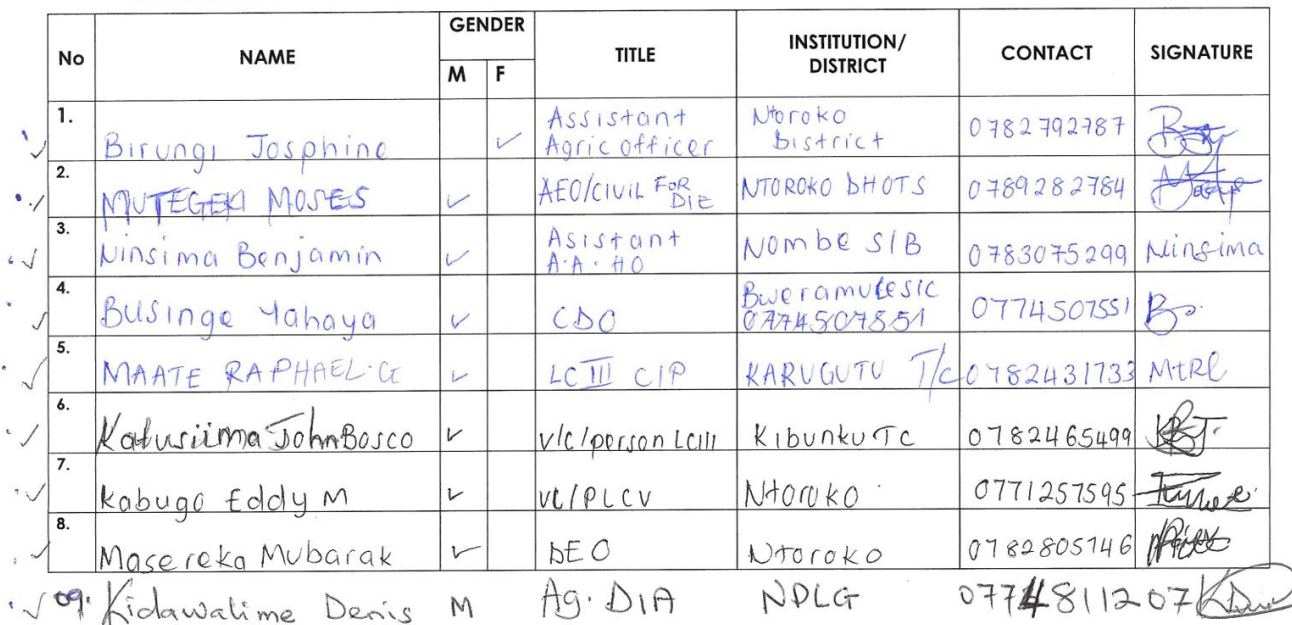 No NAME GENDER TITLE INSTITUTION/ DISTRICT CONTACT SIGNATURE
M F
1. Birungi Josphine ✓ Assistant Agric officer Ntoroko District 0782792787
2. MUTEGEKI MOSES ✓ AEO/CIVIL FOR NTOROKO DHOTS 0789282784
3. Ninsima Benjamin ✓ Asistant A.A.HO Nombe S/B 0783075299 Ninsima
4. BUSinge Yahaya ✓ CDO 0774507551
5. MAATE RAPHAEL.G ✓ LC III C/P KARUGUTU T/C 0782431733
6. Katusiima John Bosco ✓ V/C/person LCIII Kibunku TC 0782465499
7. Kabugo Eddy M ✓ VC/PLCV Ntoroko 0771257595
8. Masereka Mubarak ✓ DEO Ntoroko 0782805146
09. Kidawalime Denis M Ag. DIA NDLG 0774811207